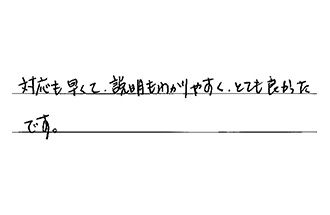 対応も早くて、説明もわかりやすく、とても良かった
です。